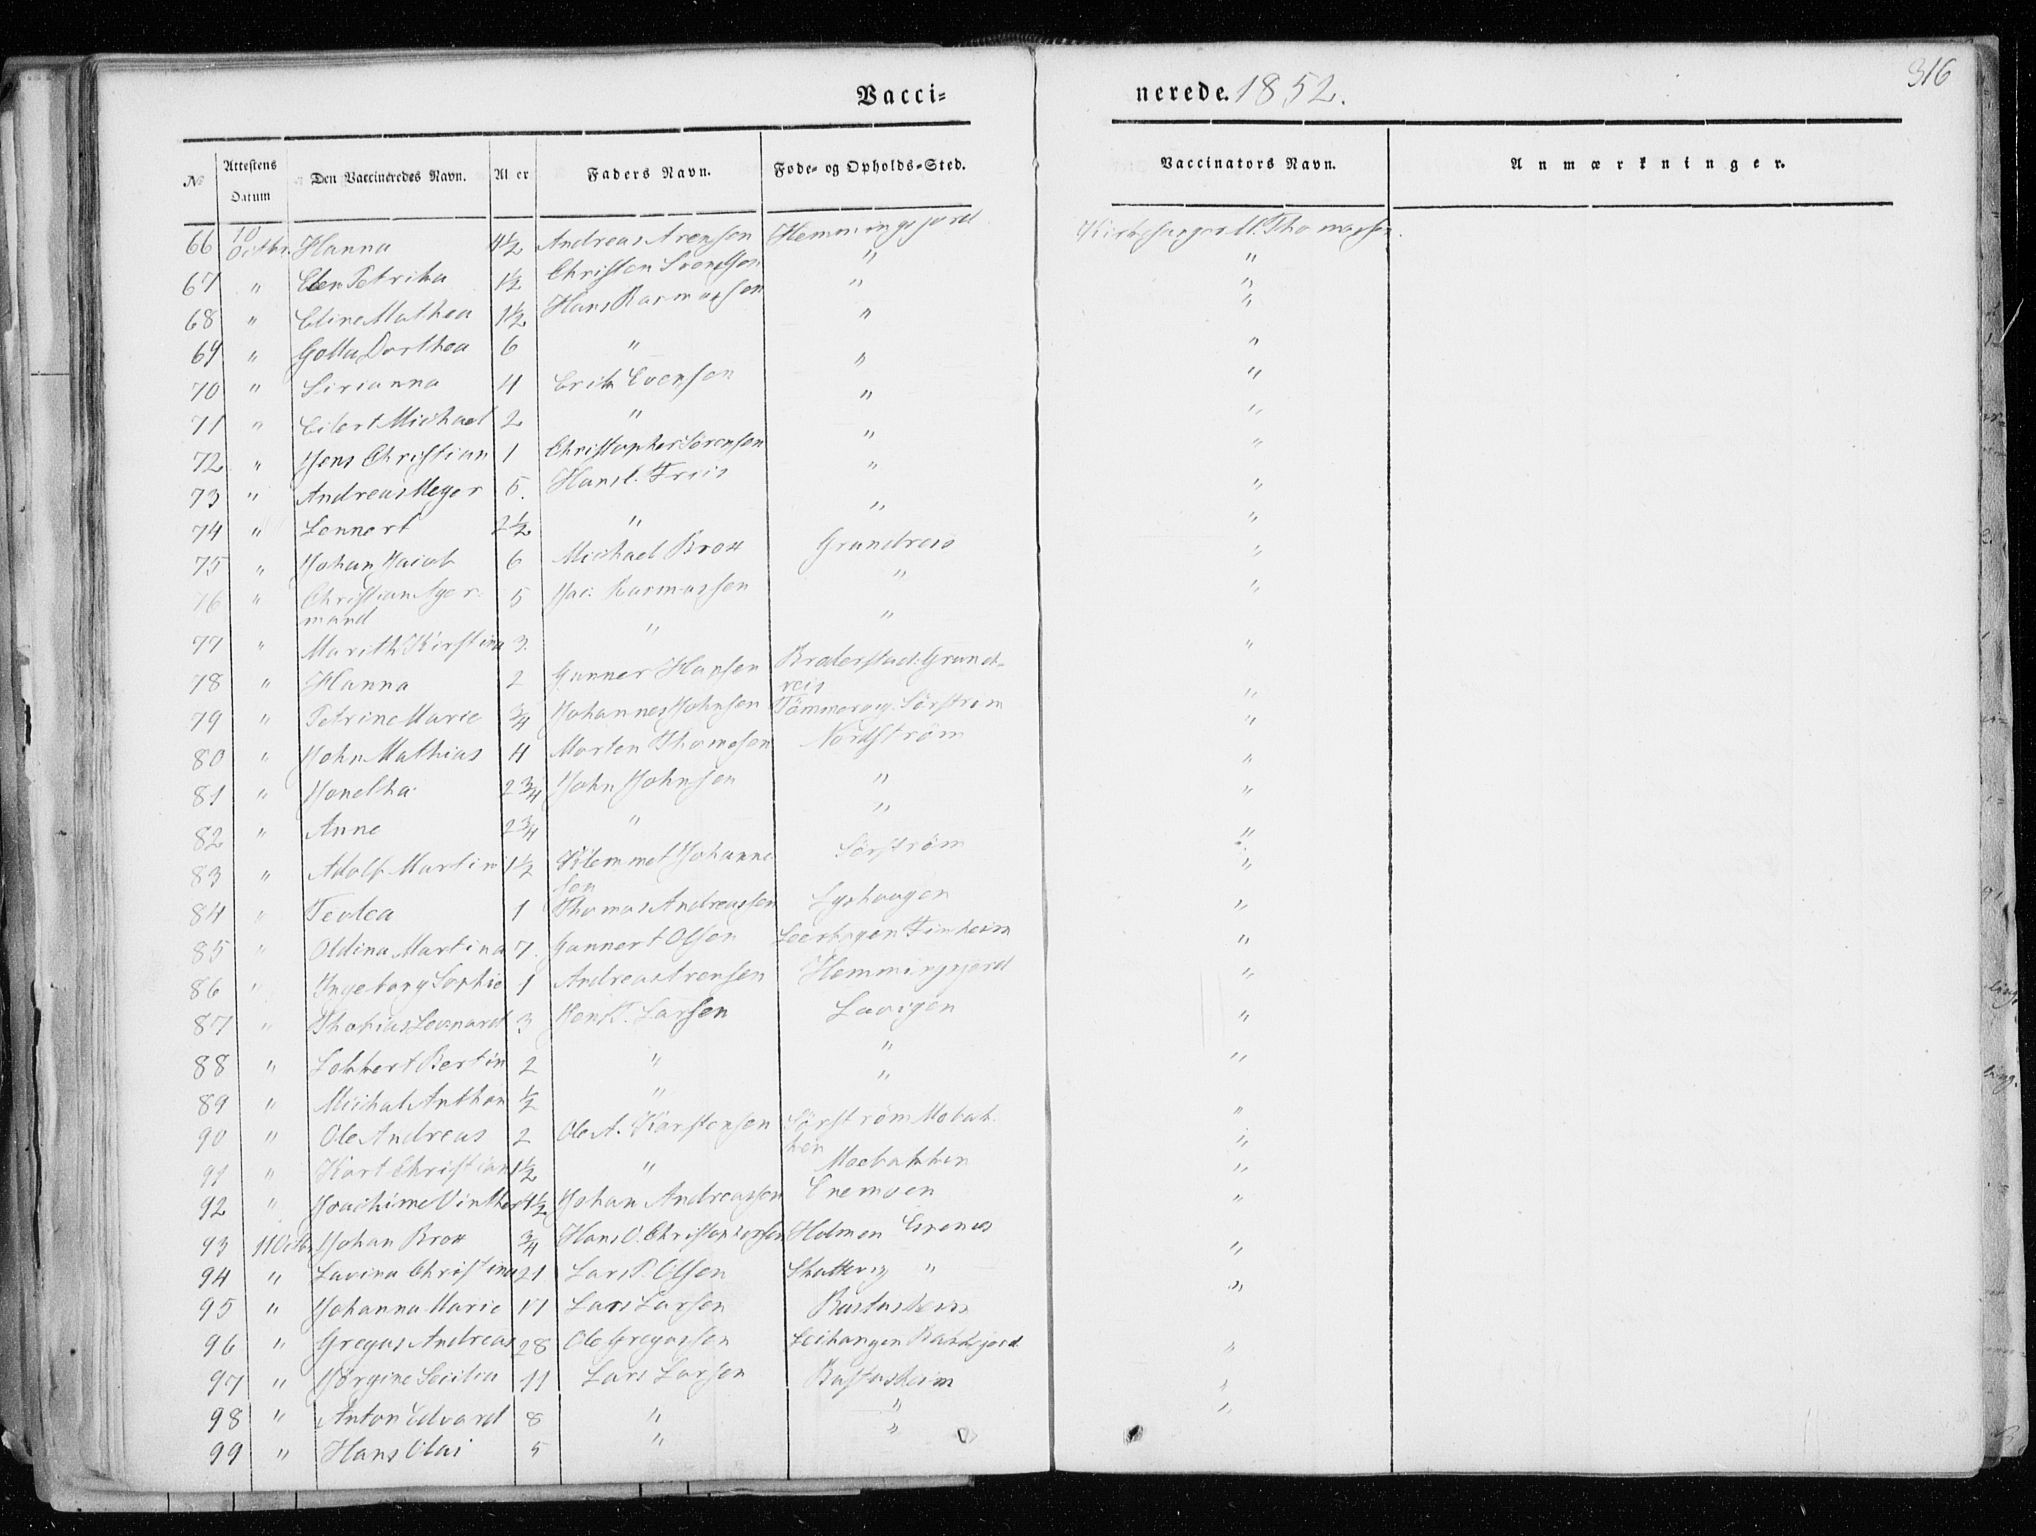 316
Vacci-
nerede. 1852.
No Attestens Datum Den Vaccineredes Navn. Alder Faders Navn. Føde- og Opholds-Sted. Vaccinators Navn. Anmærkninger.
66 10 Octbr. Hanna 4½ Andreas Arensen Hemmingsjord Thomassen.
67 " Elen Petrika 1½ Christen Svendsen " "
68 " Eline Mathea 1½ Hans Rasmussen " "
69 " Golla Dorthea 6 " " "
70 " Sirianna 4 Erik Evensen " "
71 " Eilert Michael 2 " " "
72 " Jens Christian 1 Christopher Sørensen " "
73 " Andreas Meyer 5. Hans L. Friis " "
74 " Lennert 2½ " " "
75 " Johan Jacob 6 Michael Brox Grundreis "
76 " Christian Ager-
mand 5 Jac: Rasmussen " "
77 " Marith Kirstina 3. " " "
78 " Hanna 2 Gunner Hansen Braderstad Grund-
reis "
79 " Petrine Marie ¾ Johannes Johnsen Tømmervig Sørstrøm "
80 " John Mathias 4 Morten Thomesen Nordstrøm "
81 " Jonetha 2¾ John Johnsen " "
82 " Anne 2¾ " " "
83 " Adolf Martin 1½ Klemmet Johanne-
sen Sørstrøm "
84 " Tevlea 1 Thomas Andreassen Lyshaugen "
85 " Oldina Martina 7. Gunnert Olsen Finheim "
86 " Ingeborg Sophie 1 Andreas Arensen Hemmingsjord "
87 " Thobias Leonard 3 Jens P. Larsen Lavigen "
88 " Lokkert Bertin 2 " " "
89 " Michal Anthon ½ " "
90 " Ole Andreas 2 Ole A. Karstensen Sørstrøm Mobak-
ken "
91 " Kart Christian 1½ " Moebakken "
92 " Joachime Vinther 4½ Johan Andreassen Enemoen "
93 11 Octbr Johan Brox ¾ Hans O. Christophersen Holmen Grenes "
94 " Lavina Christina 21 Lars P. Olsen Skattvig " "
95 " Johanna Marie 17 Lars Larsen Bustadheim
96 " Gregus Andreas 28 Ole Gregussen Leihangen Bakkejord "
97 " Jørgine Secilia 11 Lars Larsen Bustadheim "
98 " Anton Edvard 8 " " "
99 " Hans Olai 5 " "